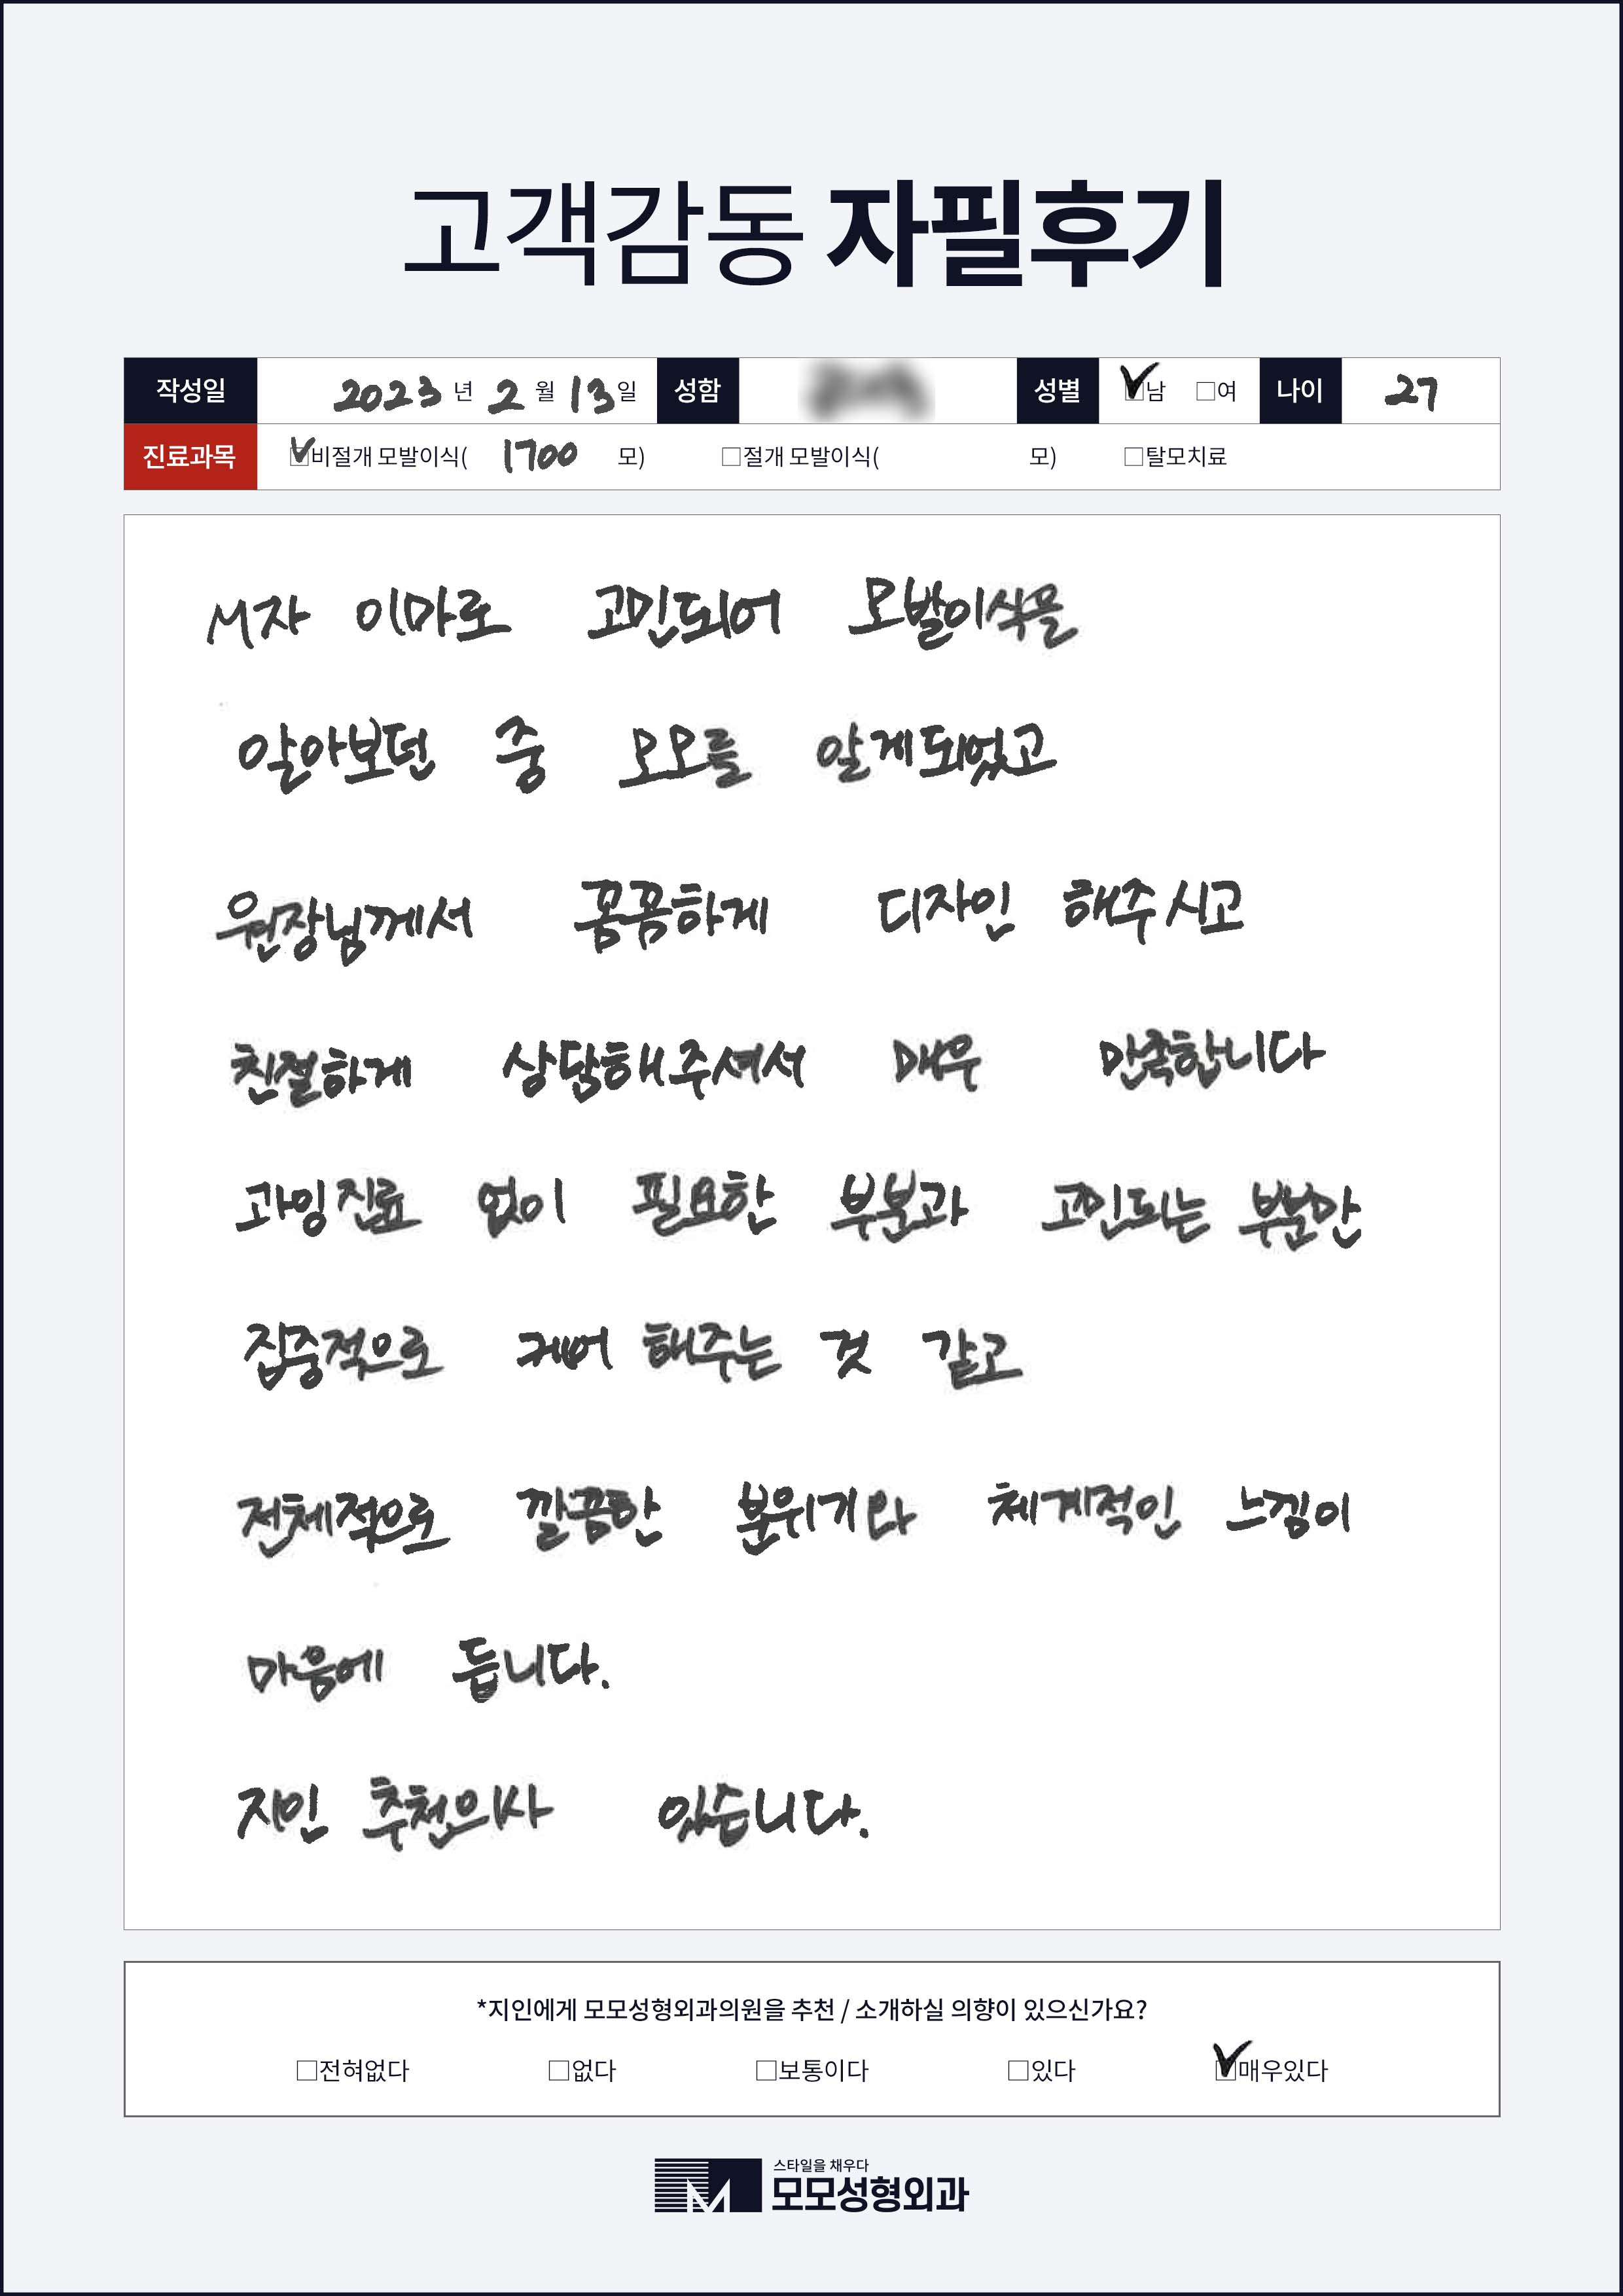 고객감동 자필후기
작성일 2023 년 2 월 13 일 성함 성별 ☑남 □여 나이 27
진료과목 ☑비절개 모발이식( 1700 모) □절개 모발이식( 모) □탈모치료
M자 이마로 고민되어 모발이식을
알아보던 중 모모를 알게되었고
원장님께서 꼼꼼하게 디자인 해주시고
친절하게 상담해주셔서 매우 만족합니다
과잉진료 없이 필요한 부분과 고민되는 부분만
집중적으로 케어 해주는 것 같고
전체적으로 깔끔한 분위기와 체계적인 느낌이
마음에 듭니다.
지인 추천의사 있습니다.
*지인에게 모모성형외과의원을 추천 / 소개하실 의향이 있으신가요?
□전혀없다 □없다 □보통이다 □있다 ☑매우있다
스타일을 채우다
모모성형외과